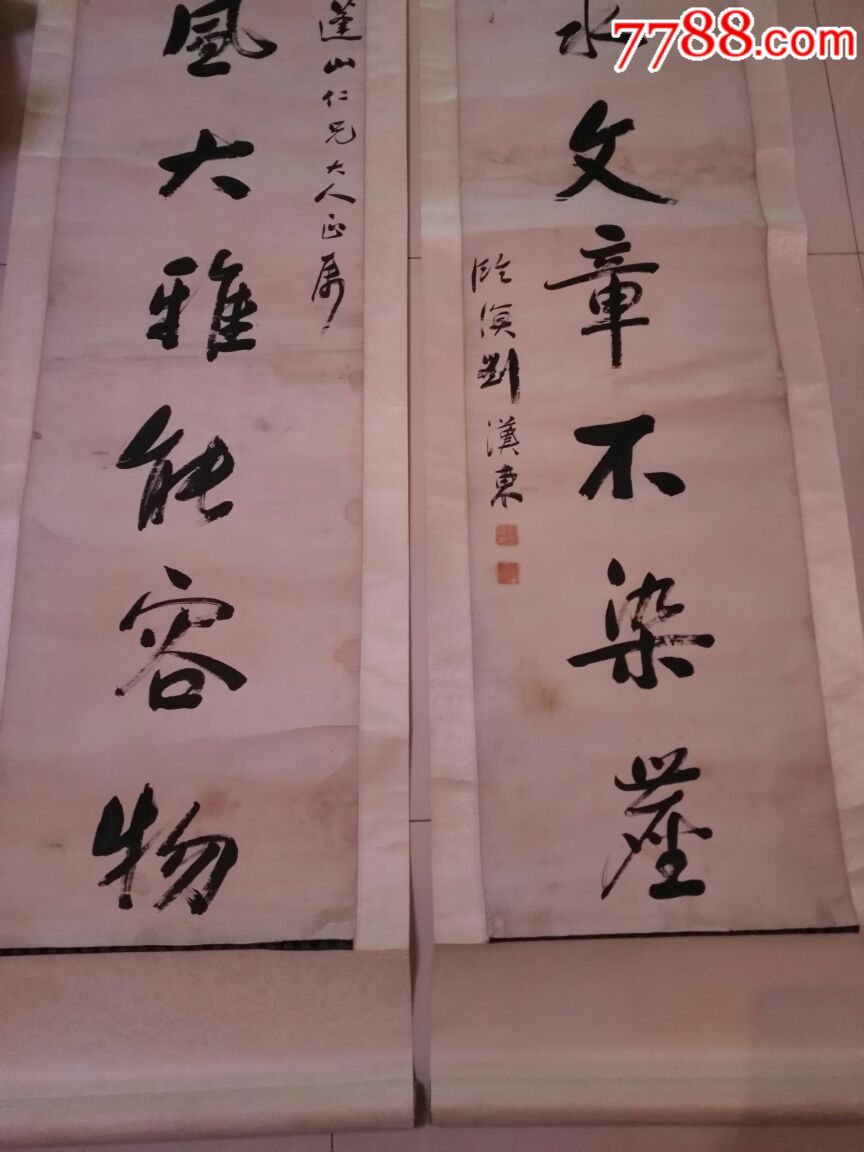 7788.com
蓬山仁兄大人正属
風大雅能容物
水文章不染塵
臨溟劉漢東